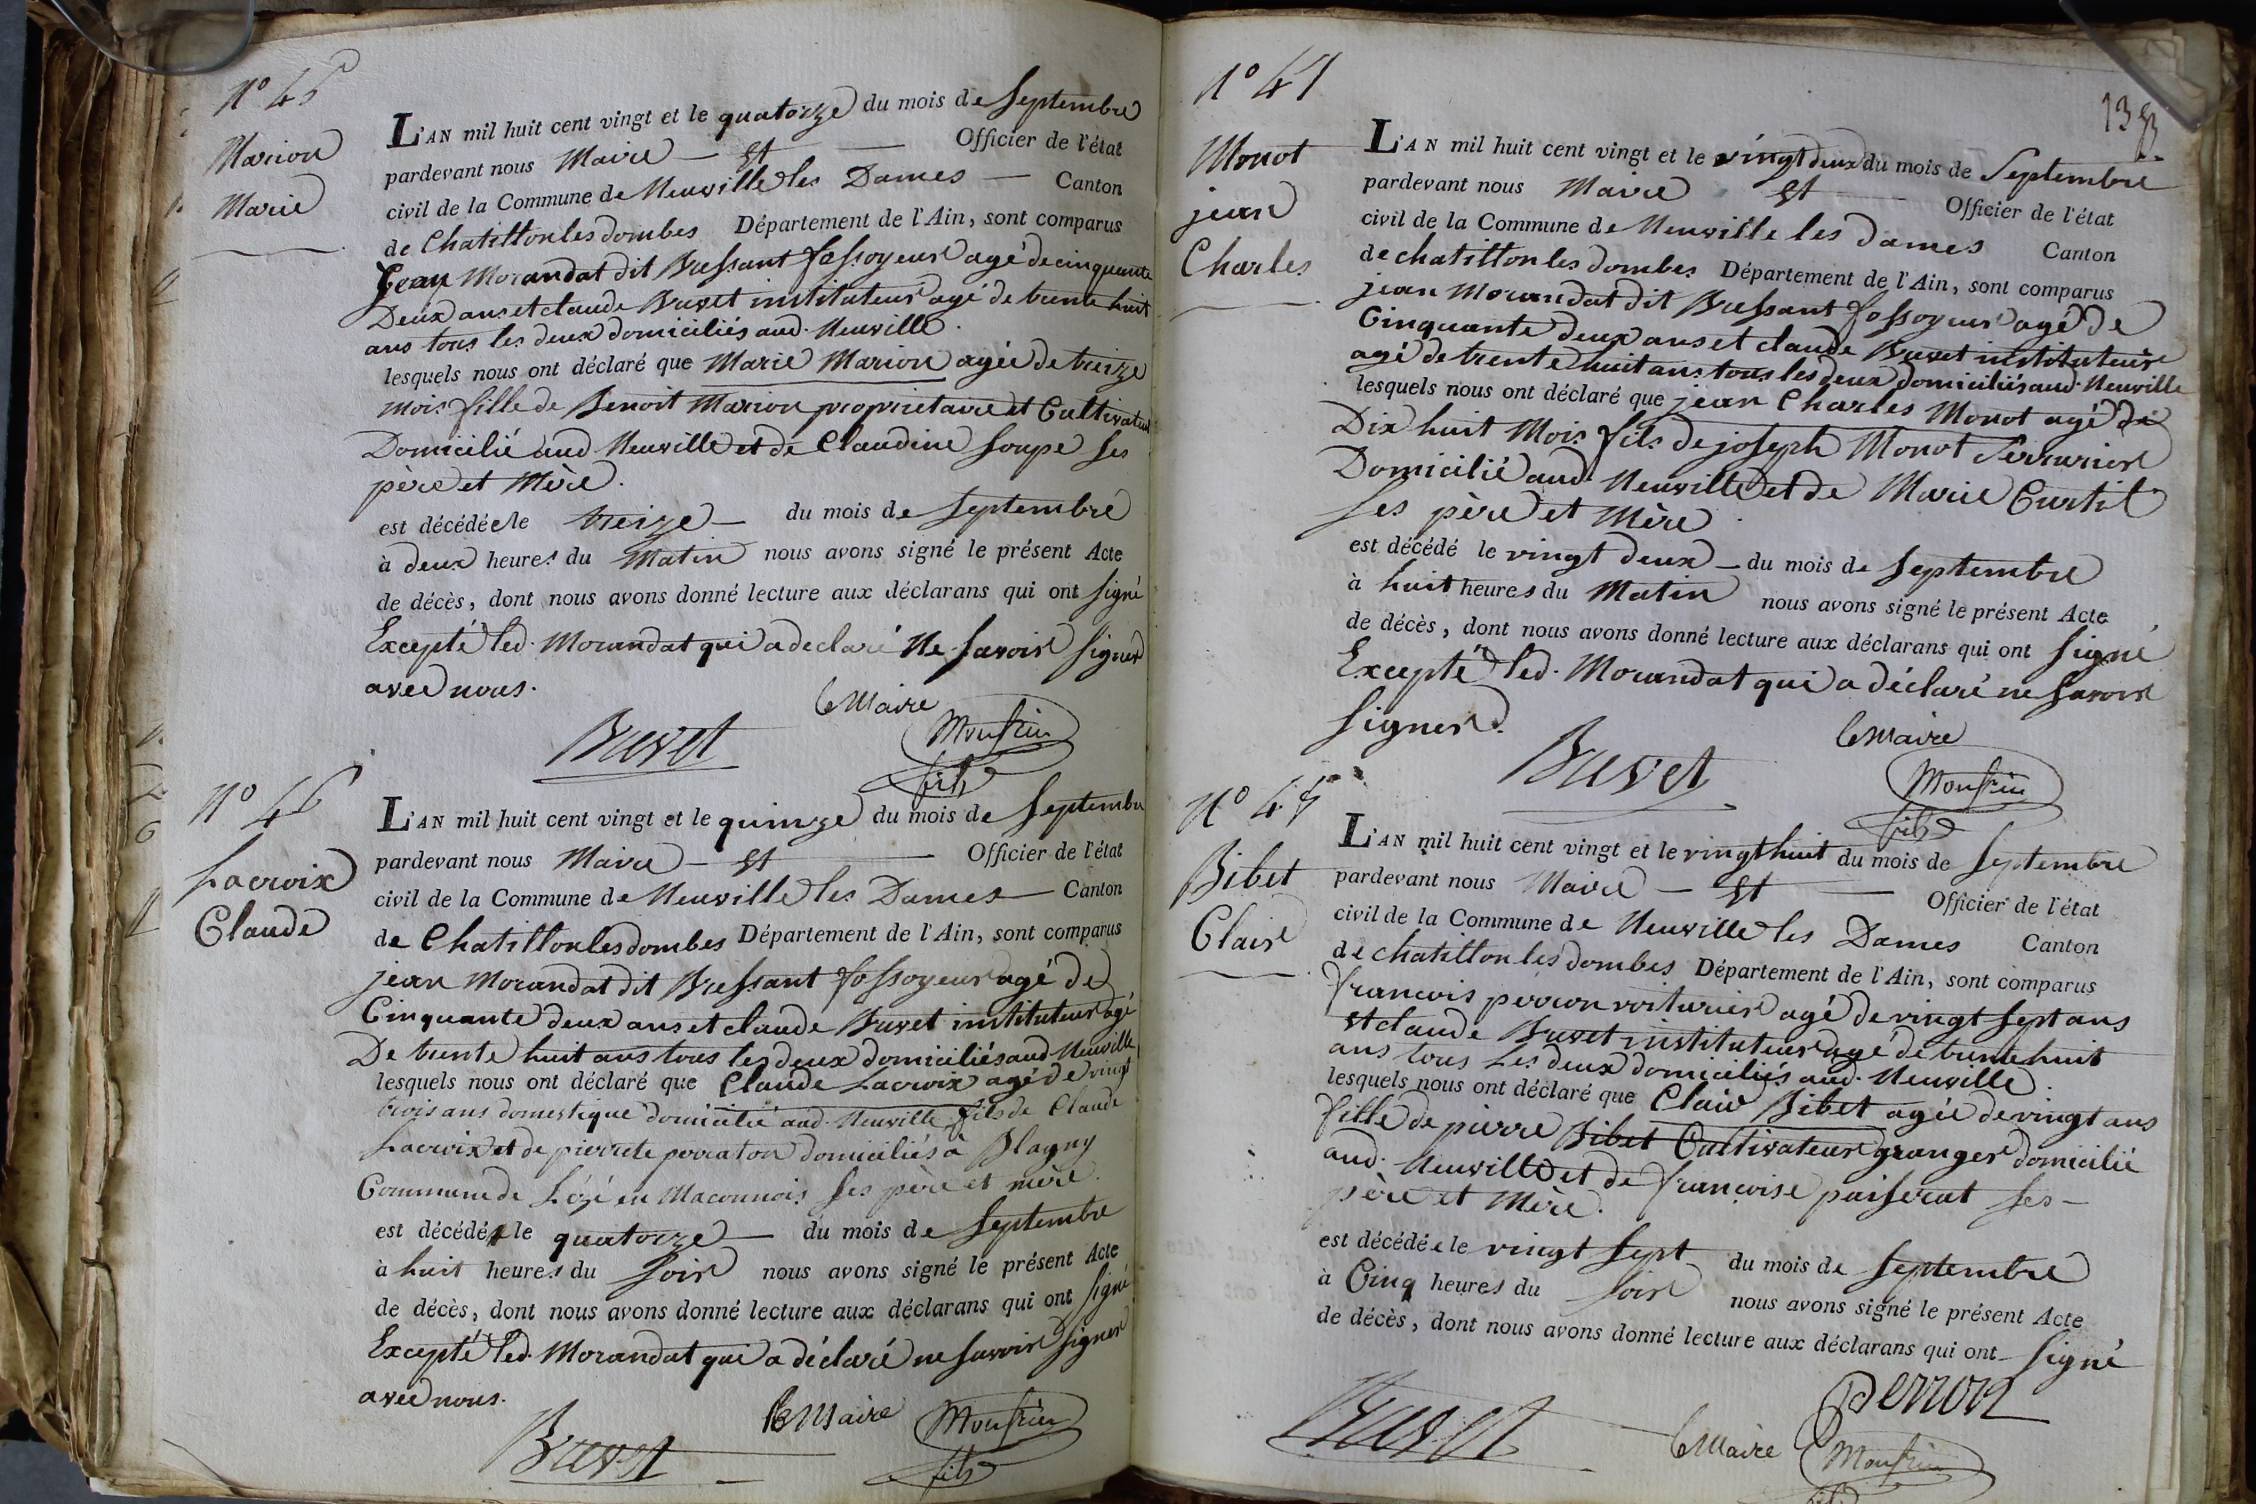 N° 45
Marion
Marie
L'AN mil huit cent vingt et le quatorze du mois de Septembre
pardevant nous Maire — Et — Officier de l'état
civil de la Commune de Neuville les Dames — Canton
de Chatillon les dombes Département de l'Ain, sont comparus
Jean Morandat dit Bressant fossoyeur agé de cinquante
Deux ans et claude Buvet instituteur agé de trente huit
ans tous les deux domiciliés aud. Neuville.
lesquels nous ont déclaré que Marie Marion agée de treize
mois fille de Benoit Marion proprietaire et Cultivateur
Domicilié aud Neuville et de Claudine Soupe Ses
père et Mère.
est décédée le treize — du mois de Septembre
à deux heures du Matin nous avons signé le présent Acte
de décès, dont nous avons donné lecture aux déclarans qui ont signé
Excepté led. Morandat qui a declaré Ne Savoir Signer
avec nous.
Buvet
le Maire
Monfrin
fils
N° 46
Lacroix
Claude
L'AN mil huit cent vingt et le quinze du mois de Septembre
pardevant nous Maire — Et — Officier de l'état
civil de la Commune de Neuville les Dames — Canton
de Chatillon les dombes Département de l'Ain, sont comparus
jean Morandat dit Bressant fossoyeur agé de
Cinquante deux ans et claude Buvet instituteur agé
De trente huit ans tous les deux domiciliés aud Neuville
lesquels nous ont déclaré que Claude Lacroix agé de vingt
trois ans domestique domicilié aud. Neuville fils de Claude
Lacroix et de pierrete perraton domiciliés à Blagny
Commune de Lézé en Maconnois Ses père et mère.
est décédé le quatorze — du mois de Septembre
à huit heures du Soir nous avons signé le présent Acte
de décès, dont nous avons donné lecture aux déclarans qui ont Signé
Excepté led. Morandat qui a déclaré ne Savoir Signer
avec nous.
Buvet
le Maire
Monfrin
fils
N° 47
Monot
jean
Charles
L'AN mil huit cent vingt et le vingt deux du mois de Septembre
pardevant nous Maire Et — Officier de l'état
civil de la Commune de Neuville les Dames Canton
de chatillon les dombes Département de l'Ain, sont comparus
jean Morandat dit Bressant fossoyeur agé de
Cinquante deux ans et claude Buvet instituteur
agé de trente huit ans tous les deux domiciliés aud. Neuville
lesquels nous ont déclaré que jean Charles Monot agé de
Dix huit Mois fils de joseph Monot Serrurier
Domicilié aud. Neuville et de Marie Curtil
Ses père et Mère.
est décédé le vingt deux — du mois de Septembre
à huit heures du Matin nous avons signé le présent Acte
de décès, dont nous avons donné lecture aux déclarans qui ont Signé
Excepté led. Morandat qui a déclaré ne Savoir
Signer.
Buvet
le Maire
Monfrin
fils
N° 48
Bibet
Clair
L'AN mil huit cent vingt et le vingt huit du mois de Septembre
pardevant nous Maire — Et — Officier de l'état
civil de la Commune de Neuville les Dames Canton
de chatillon les dombes Département de l'Ain, sont comparus
francois perron voiturier agé de vingt Sept ans
et claude Buvet instituteur agé de trente huit
ans tous Les deux domiciliés aud. Neuville.
lesquels nous ont déclaré que Clair Bibet agée de vingt ans
fille de pierre Bibet Cultivateur granger domicilié
aud. Neuville et de françoise paiserat Ses —
père et Mère.
est décédée le vingt Sept du mois de Septembre
à Cinq heures du Soir nous avons signé le présent Acte
de décès, dont nous avons donné lecture aux déclarans qui ont Signé
Perron
Buvet
le Maire
Monfrin